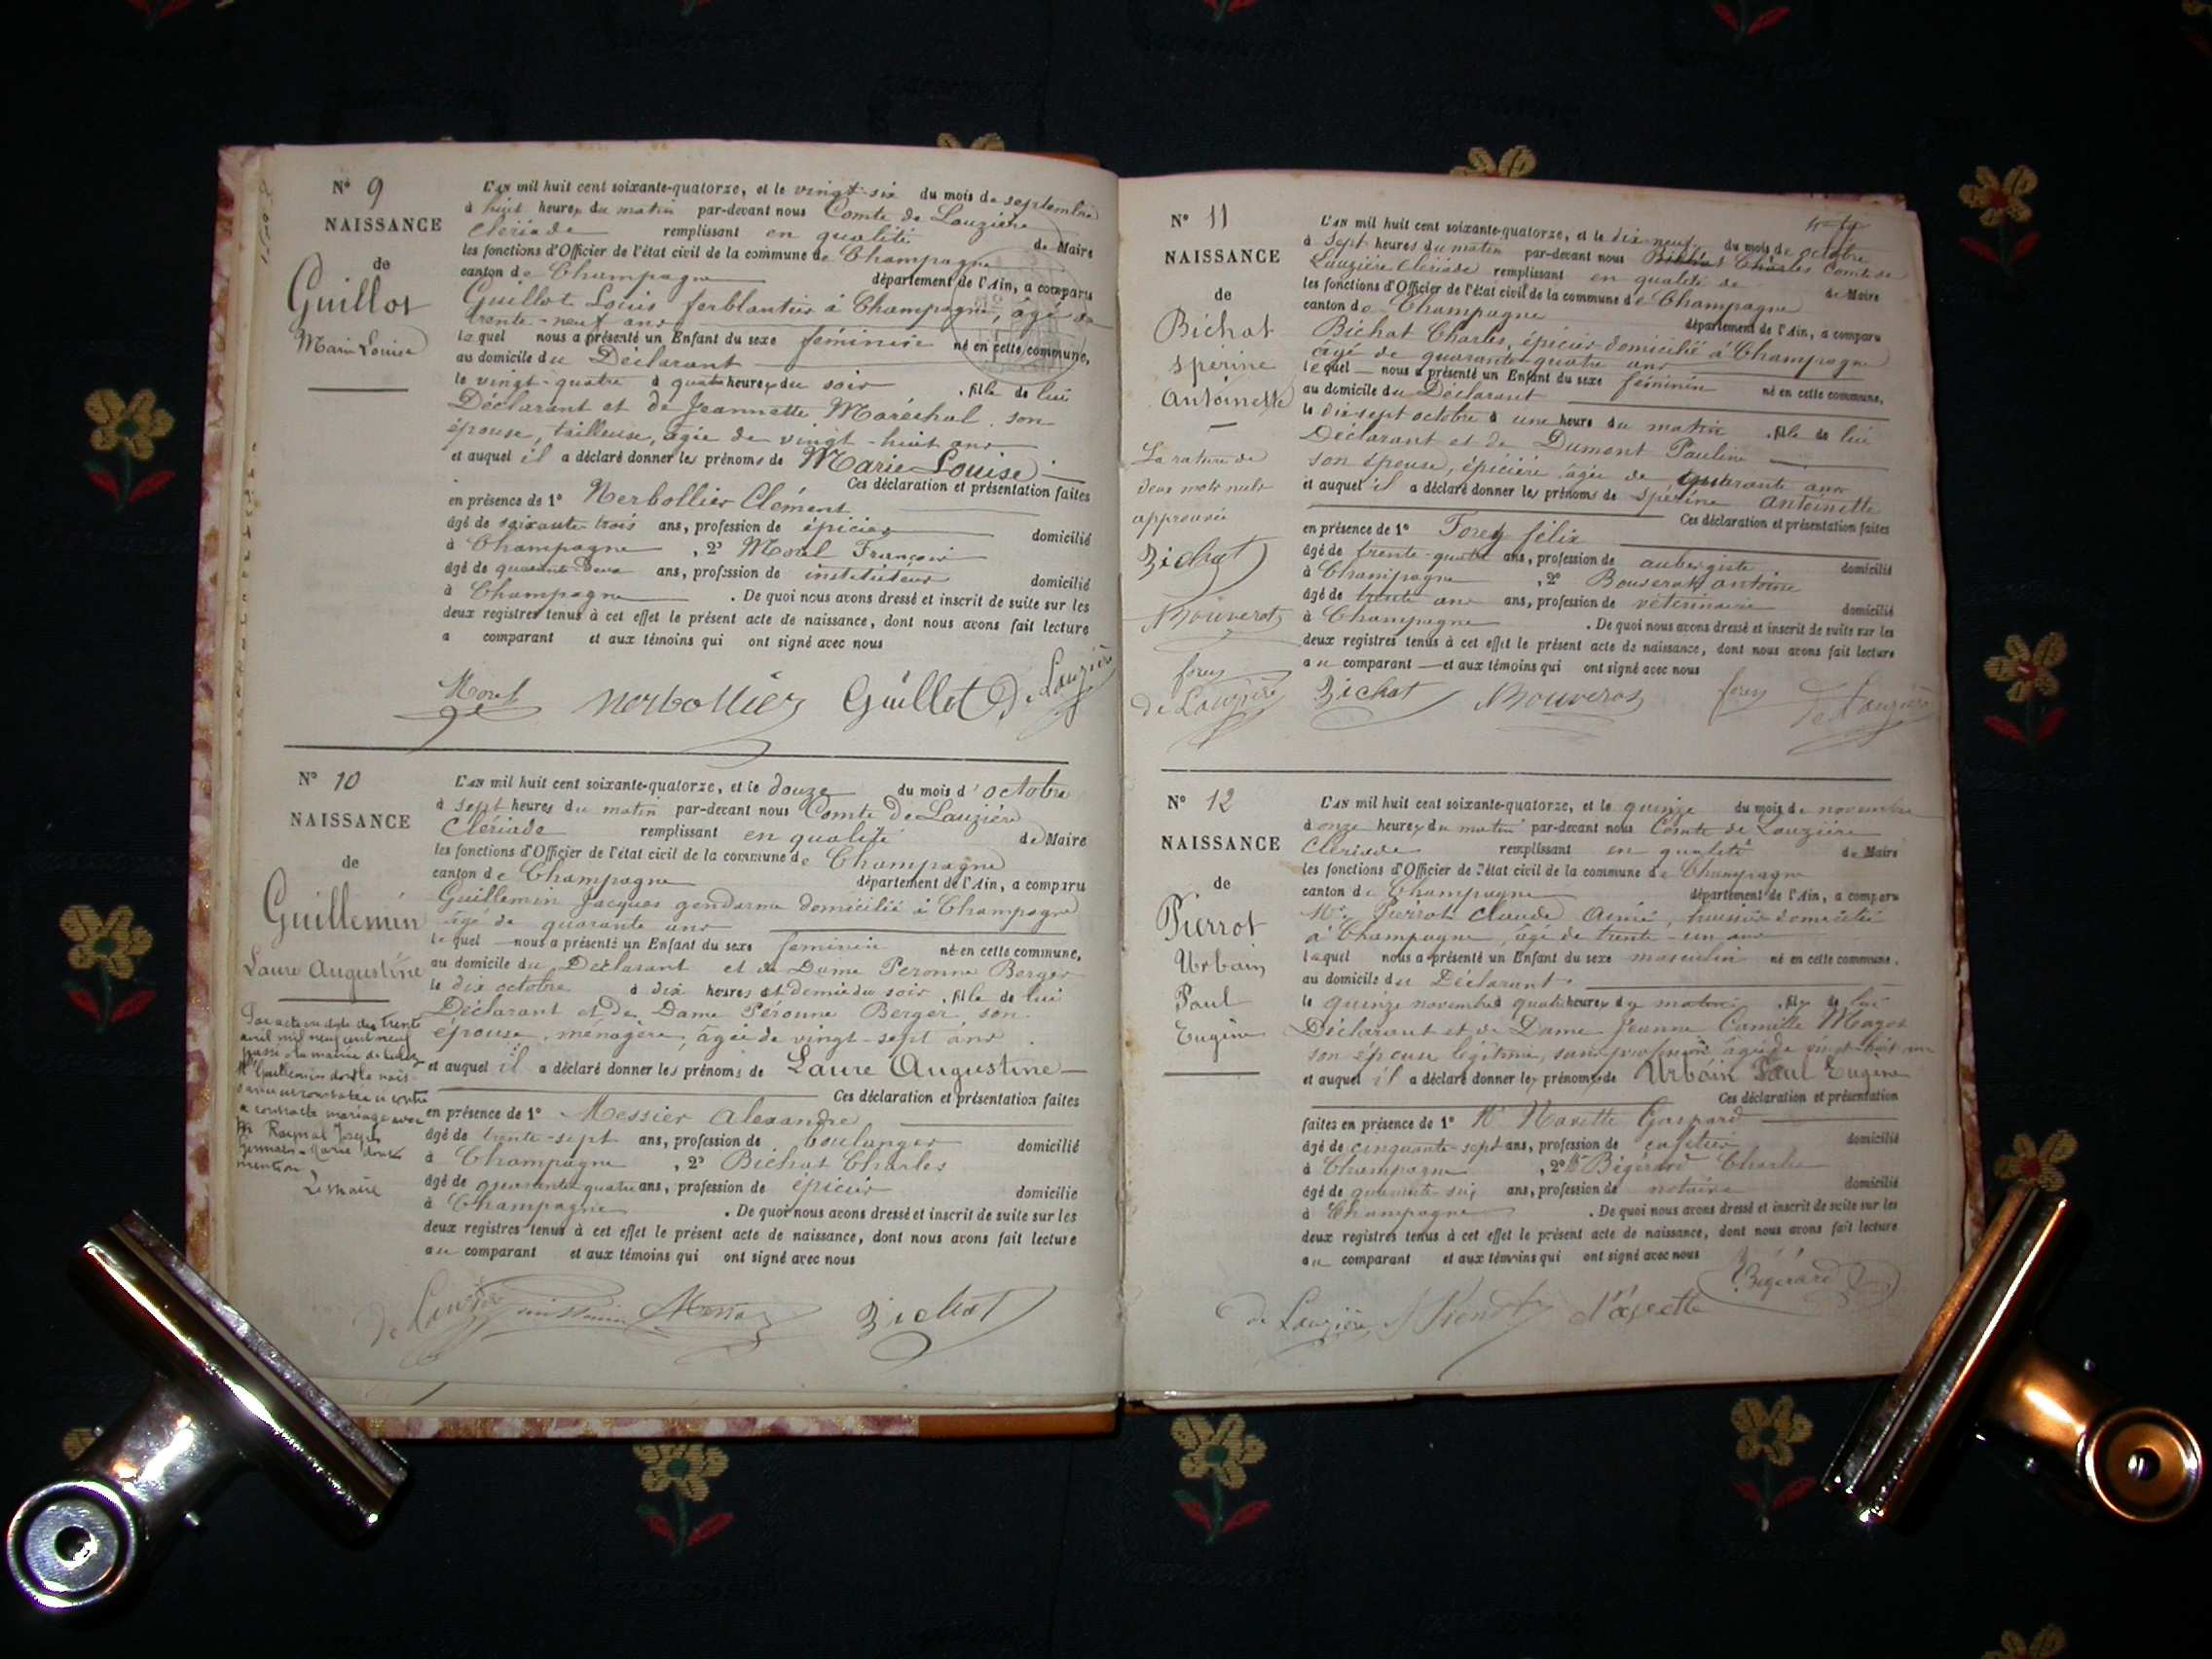 N° 9
NAISSANCE
de
Guillot
Marie Louise
L'AN mil huit cent soixante-quatorze, et le vingt-six du mois de septembre
à huit heures du matin par-devant nous Comte de Lauzière
Clériade remplissant en qualité de Maire
les fonctions d'Officier de l'état civil de la commune de Champagne
canton de Champagne département de l'Ain, a comparu
Guillot Louis ferblantier à Champagne, âgé de
trente-neuf ans
lequel nous a présenté un Enfant du sexe féminin né en cette commune,
au domicile du Déclarant
le vingt-quatre à quatre heures du soir, fille de lui
Déclarant et de Jeannette Maréchal, son
épouse, tailleuse, âgée de vingt-huit ans
et auquel il a déclaré donner les prénoms de Marie Louise
Ces déclaration et présentation faites
en présence de 1° Nerbollier Clément
âgé de soixante-trois ans, profession de épicier domicilié
à Champagne, 2° Morel François
âgé de quarante-deux ans, profession de instituteur domicilié
à Champagne. De quoi nous avons dressé et inscrit de suite sur les
deux registres tenus à cet effet le présent acte de naissance, dont nous avons fait lecture
a comparant et aux témoins qui ont signé avec nous
Morel Nerbollier Guillot De Lauzière
N° 10
NAISSANCE
de
Guillemin
Laure Augustine
Par acte en date du trente
avril mil neuf cent neuf
passé à la mairie de
Mlle Guillemin dont la nais-
sance est constatée ci contre
a contracté mariage avec
Mr Raynal Joseph
Germain Marie dont
mention,
Le Maire
L'AN mil huit cent soixante-quatorze, et le douze du mois d'octobre
à sept heures du matin par-devant nous Comte De Lauzière
Clériade remplissant en qualité de Maire
les fonctions d'Officier de l'état civil de la commune de Champagne
canton de Champagne département de l'Ain, a comparu
Guillemin Jacques gendarme domicilié à Champagne
âgé de quarante ans
lequel nous a présenté un Enfant du sexe féminin né en cette commune,
au domicile du Déclarant et de Dame Peronne Berger
le dix octobre à dix heures et demie du soir, fille de lui
Déclarant et de Dame Péronne Berger son
épouse, ménagère, âgée de vingt-sept ans
et auquel il a déclaré donner les prénoms de Laure Augustine
Ces déclaration et présentation faites
en présence de 1° Messier Alexandre
âgé de trente-sept ans, profession de boulanger domicilié
à Champagne, 2° Bichat Charles
âgé de quarante-quatre ans, profession de épicier domicilié
à Champagne. De quoi nous avons dressé et inscrit de suite sur les
deux registres tenus à cet effet le présent acte de naissance, dont nous avons fait lecture
au comparant et aux témoins qui ont signé avec nous
De Lauzière Guillemin Messier Bichat
N° 11
NAISSANCE
de
Bichat
Spérine
Antoinette
La rature de
deux mots nuls
approuvée
Bichat
Bouverot
forey
de Lauzière
L'AN mil huit cent soixante-quatorze, et le dix-neuf du mois de octobre
à sept heures du matin par-devant nous Bichat Charles Comte de
Lauzière Clériade remplissant en qualité de de Maire
les fonctions d'Officier de l'état civil de la commune de Champagne
canton de Champagne département de l'Ain, a comparu
Bichat Charles, épicier domicilié à Champagne
âgé de quarante-quatre ans
lequel nous a présenté un Enfant du sexe féminin né en cette commune,
au domicile du Déclarant
le dix-sept octobre à une heure du matin, fille de lui
Déclarant et de Dumont Pauline
son épouse, épicière âgée de quarante ans
et auquel il a déclaré donner les prénoms de Spérine Antoinette
Ces déclaration et présentation faites
en présence de 1° Forey félix
âgé de trente-quatre ans, profession de aubergiste domicilié
à Champagne, 2° Bouverot antoine
âgé de trente ans ans, profession de vétérinaire domicilié
à Champagne. De quoi nous avons dressé et inscrit de suite sur les
deux registres tenus à cet effet le présent acte de naissance, dont nous avons fait lecture
au comparant et aux témoins qui ont signé avec nous
Bichat Bouverot forey de Lauzière
N° 12
NAISSANCE
de
Pierrot
Urbain
Paul
Eugène
L'AN mil huit cent soixante-quatorze, et le quinze du mois de novembre
à onze heures du matin par-devant nous Comte de Lauzière
Clériade remplissant en qualité de Maire
les fonctions d'Officier de l'état civil de la commune de Champagne
canton de Champagne département de l'Ain, a comparu
Mr Pierrot Claude Aimé, huissier domicilié
à Champagne, âgé de trente-un ans
lequel nous a présenté un Enfant du sexe masculin né en cette commune,
au domicile du Déclarant
le quinze novembre à quatre heures du matin, fils de lui
Déclarant et de Dame Jeanne Camille Magot
son épouse légitime, sans profession âgée de vingt-huit ans
et auquel il a déclaré donner les prénoms de Urbain Paul Eugène
Ces déclaration et présentation
faites en présence de 1° Mr Navette Gaspard
âgé de cinquante-sept ans, profession de cafetier domicilié
à Champagne, 2° Mr Bégérard Charles
âgé de quarante-six ans, profession de notaire domicilié
à Champagne. De quoi nous avons dressé et inscrit de suite sur les
deux registres tenus à cet effet le présent acte de naissance, dont nous avons fait lecture
au comparant et aux témoins qui ont signé avec nous
de Lauzière Pierrot Navette Bégérard